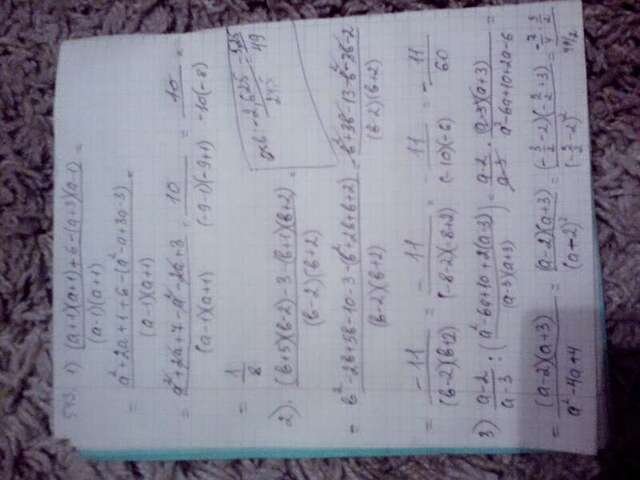 543 1) (a+1)(a+1)+6-(a+3)(a-1) / (a-1)(a+1) =
= a²+2a+1+6-(a²-a+3a-3) / (a-1)(a+1) =
= a²+2a+7-a²-2a+3 / (a-1)(a+1) = 10 / (-9-1)(-9+1) = 10 / -10(-8) =
= 1/8
2) (b+5)(b-2)-3-(b+1)(b+2) / (b-2)(b+2) =
= b²-2b+5b-10-3-(b²+2b+b+2) / (b-2)(b+2) = b²+3b-13-b²-3b-2 / (b-2)(b+2)
= -11 / (b-2)(b+2) = - 11 / (-8-2)(-8+2) = - 11 / (-10)(-6) = - 11/60
3) a-2 / a-3 : (a²-6a+10+2(a-3) / (a-3)(a+3)) = a-2 / a-3 · (a-3)(a+3) / a²-6a+10+2a-6
= (a-2)(a+3) / a²-4a+4 = (a-2)(a+3) / (a-2)² = (-3/2-2)(-3/2+3) / (-3/2-2)²